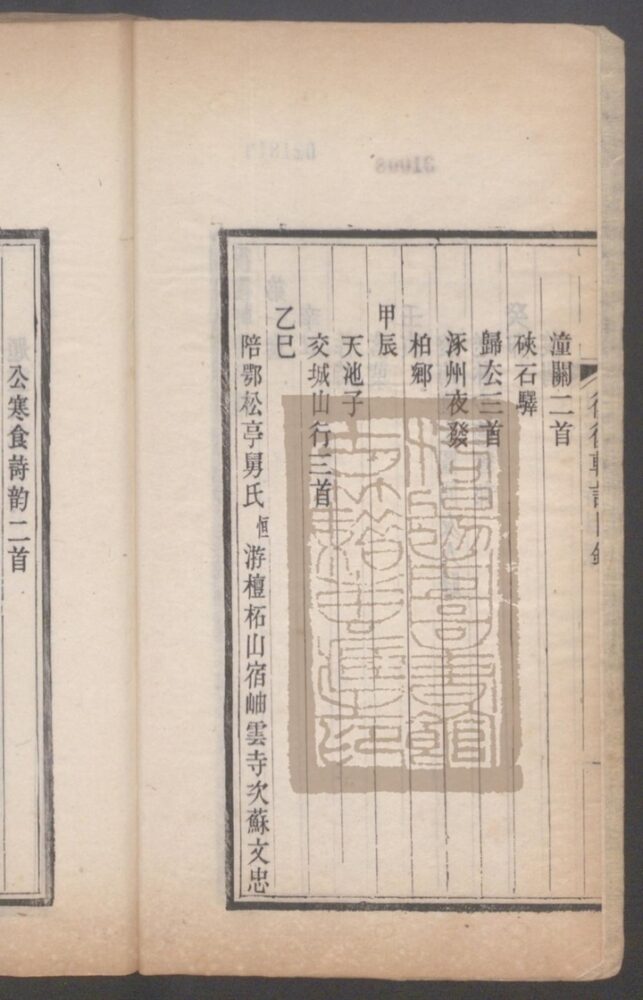 潼關二首
硤石驛
歸厺三首
涿州夜發
柏鄉
甲辰
天池子
交城山行三首
乙巳
陪鄂松亭舅氏恒游檀柘山宿岫雲寺次蘇文忠
公寒食詩韵二首